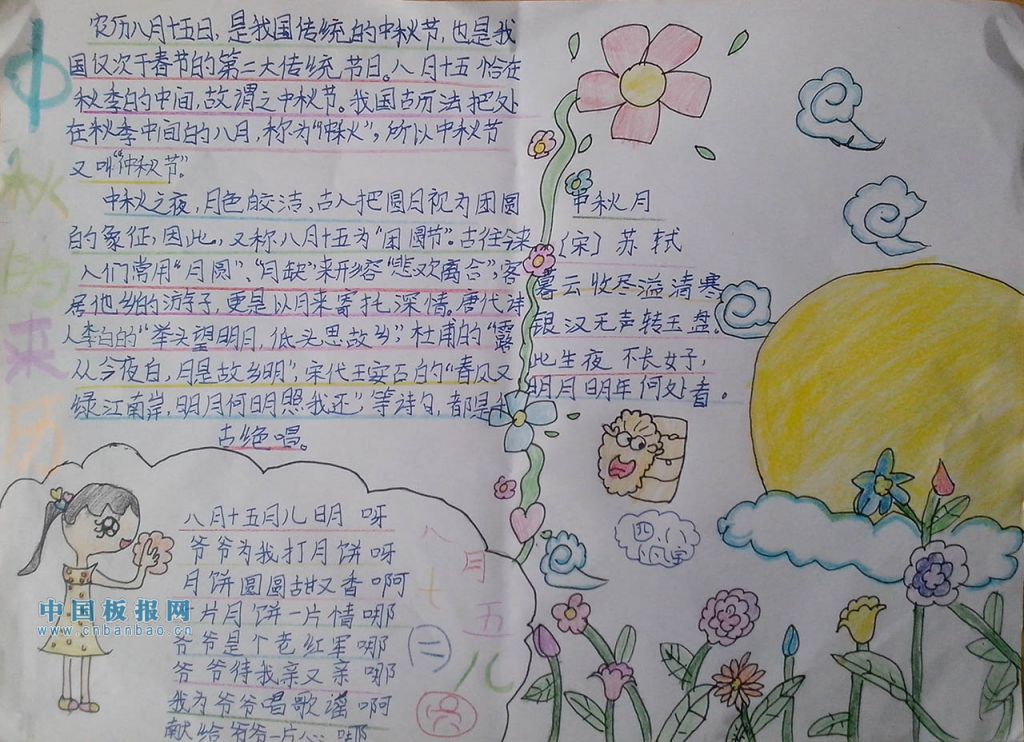 中秋的来历
农历八月十五日,是我国传统的中秋节,也是我
国仅次于春节的第二大传统节日。八月十五恰在
秋季的中间,故谓之中秋节。我国古历法把处
在秋季中间的八月,称为“仲秋”,所以中秋节
又叫“仲秋节”。
中秋之夜,月色皎洁,古人把圆月视为团圆
的象征,因此,又称八月十五为“团圆节”。古往今来
人们常用“月圆”、“月缺”来形容“悲欢离合”,客
居他乡的游子,更是以月来寄托深情。唐代诗
人李白的“举头望明月,低头思故乡”,杜甫的“露
从今夜白,月是故乡明”,宋代王安石的“春风又
绿江南岸,明月何时照我还”等诗句,都是千
古绝唱。
中秋月
〔宋〕苏轼
暮云收尽溢清寒
银汉无声转玉盘。
此生夜不长好,
明月明年何处看。
八月十五月儿明呀
爷爷为我打月饼呀
月饼圆圆甜又香啊
片月饼一片情哪
爷爷是个老红军哪
爷爷待我亲又亲哪
我为爷爷唱歌谣啊
献给爷爷一片心哪
八月十五儿
(二)
中国板报网
www.cnbanbao.cn